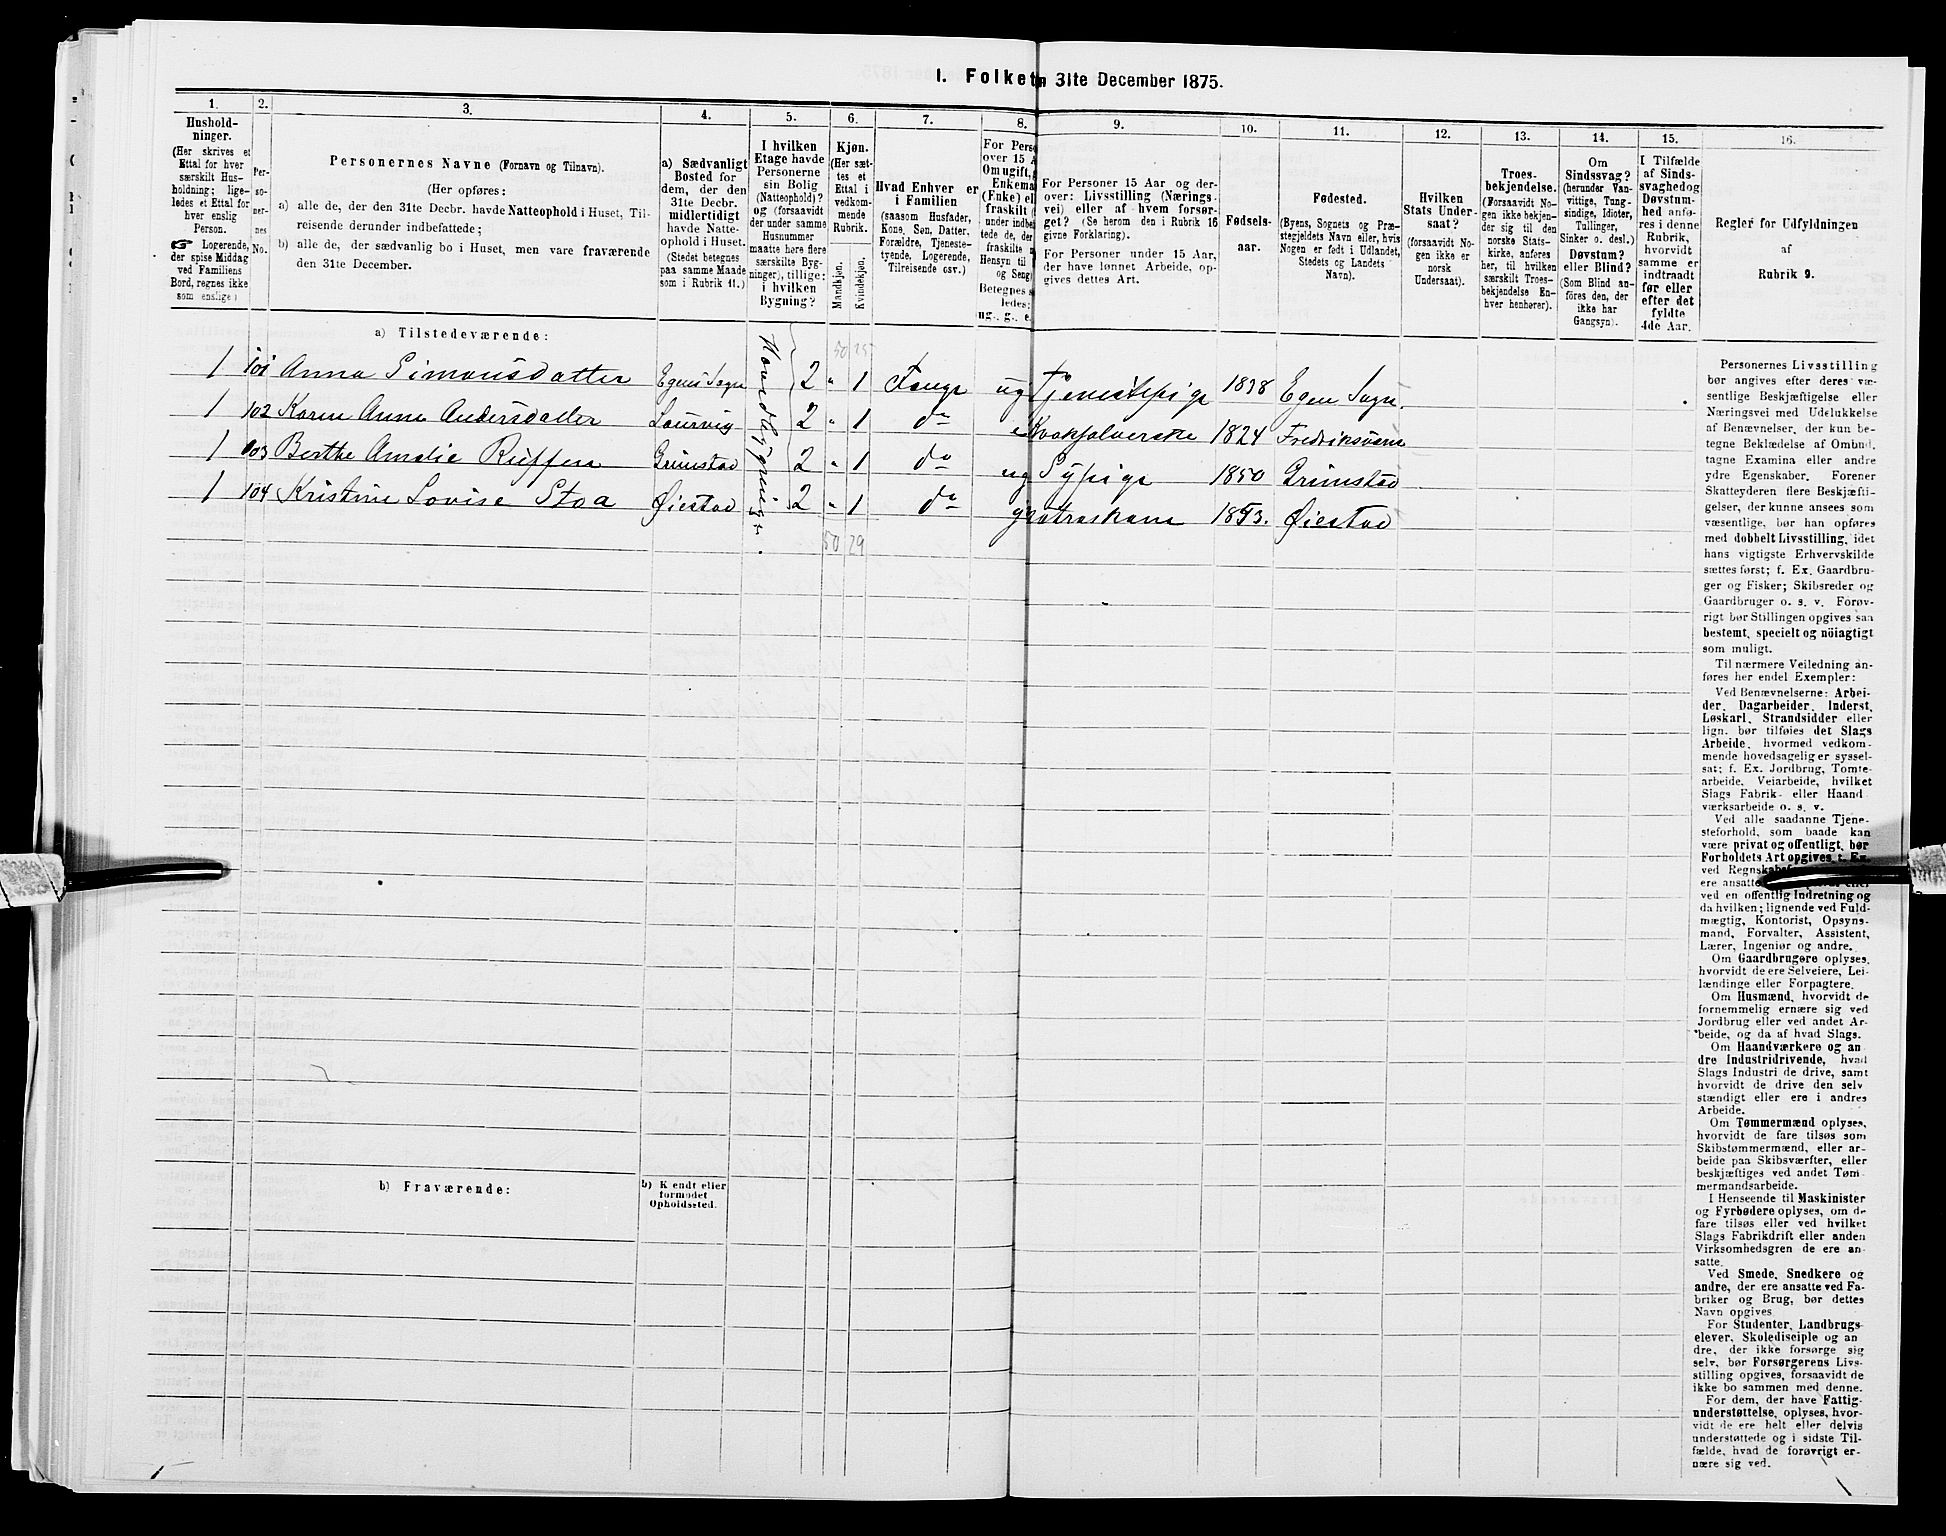 I. Folketn 31te December 1875.
1.
Hushold-
ninger.
(Her skrives et
Ettal for hver
særskilt Hus-
holdning; lige-
ledes et Ettal for
hver enslig
Person.
☞ Logerende,
der spise Middag
ved Familiens
Bord, regnes ikke
som enslige)
2.
Per-
so-
ner-
nes
No.
3.
Personernes Navne (Fornavn og Tilnavn).
(Her opføres:
a) alle de, der den 31te Decbr. havde Natteophold i Huset, Til-
reisende derunder indbefattede;
b) alle de, der sædvanlig bo i Huset, men vare fraværende
den 31te December.
4.
a) Sædvanligt
Bosted for
dem, der den
31te Decbr.
midlertidigt
havde Natte-
ophold i Huset.
(Stedet betegnes
paa samme Maade
som i Rubrik 11.)
5.
I hvilken
Etage havde
Personerne
sin Bolig
(Natteophold)?
og (forsaavidt
der under samme
Husnummer
maatte høre flere
særskilte Byg-
ninger), tillige:
i hvilken
Bygning?
6.
Kjøn.
(Her sæt-
tes et
Ettal i
vedkom-
mende
Rubrik.
Mandkjøn.
Kvindekjøn.
7.
Hvad Enhver er
i Familien
(saasom Husfader,
Kone, Søn, Datter,
Forældre, Tjeneste-
tyende, Logerende,
Tilreisende osv.)
8.
For Pers
over 15 A
Om ugift,
Enkema
(Enke) el
fraskilt (
under indbe
tede de, der
fraskilte
Hensyn til
og Seng)
Betegnes s
ledes:
ug., g., e.
9.
For Personer 15 Aar og der-
over: Livsstilling (Nærings-
vei) eller af hvem forsør-
get? (Se herom den i Rubrik 16
givne Forklaring).
For Personer under 15 Aar,
der have lønnet Arbeide, op-
gives dettes Art.
10.
Fødsels-
aar.
11.
Fødested.
(Byens, Sognets og Præ-
stegjeldets Navn eller, hvis
Nogen er født i Udlandet,
Stedets og Landets
Navn).
12.
Hvilken
Stats Under-
saat?
(forsaavidt No-
gen ikke er
norsk
Undersaat).
13.
Troes-
bekjendelse.
(Forsaavidt No-
gen ikke bekjen-
der sig til den
norske Stats-
kirke, anføres
her, til hvilken
særskilt Troes-
bekjendelse En-
hver henhører).
14.
Om
Sindssvag?
(herunder Van-
vittige, Tung-
sindige, Idioter,
Tullinger,
Sinker o. desl.)
Døvstum?
eller Blind?
(Som Blind an-
føres den, der
ikke har
Gangsyn).
15.
I Tilfælde
af Sinds-
svaghedog
Døvstum-
hed anfø-
res i denne
Rubrik,
hvorvidt
samme er
indtraadt
før eller
efter det
fyldte
4de Aar.
16.
Regler for Udfyldningen
af
Rubrik 9.
a) Tilstedeværende:
50 25
1 101 Anna Simonsdatter Egens Sogn 2 " 1 Fange ug Tjenestepige 1838 Egen Sogn.
1 102 Karen Anne Andersdatter Laurvig 2 " 1 do e Kvaksalverske 1824 Fredriksværn
1 103 Berthe Amalie Ruffen Grimstad 2 " 1 do ug Sypige 1850 Grimstad
1 104 Kristine Lovise Stoa Øiestad 2 " 1 do g Matroskone 1853. Øiestad
Hovedbygning.
50 29
b) Fraværende:
b) Kjendt eller
formodet
Opholdssted.
Personernes Livsstilling
bør angives efter deres væ-
sentlige Beskjæftigelse eller
Næringsvei med Udelukkelse
af Benævnelser, der kun be-
tegne Beklædelse af Ombud,
tagne Examina eller andre
ydre Egenskaber. Forener
Skatteyderen flere Beskjæfti-
gelser, der kunne ansees som
væsentlige, bør han opføres
med dobbelt Livsstilling, idet
hans vigtigste Erhvervskilde
sættes først; f. Ex. Gaardbru-
ger og Fisker; Skibsreder og
Gaardbruger o. s. v. Forøv-
rigt bør Stillingen opgives saa
bestemt, specielt og nöiagtigt
som muligt.
Til nærmere Veiledning an-
føres her endel Exempler:
Ved Benævnelserne: Arbei-
der, Dagarbeider, Inderst,
Løskarl, Strandsidder eller
lign. bør tilføies det Slags
Arbeide, hvormed vedkom-
mende hovedsagelig er syssel-
sat; f. Ex. Jordbrug, Tomte-
arbeide, Veiarbeide, hvilket
Slags Fabrik- eller Haand
værksarbeide o. s. v.
Ved alle saadanne Tjene-
steforhold, som baade kan
være privat og offentligt, bør
Forholdets Art opgives, t. Ex.
ved Regnskabsf
ere ansatte
ved en offentlig Indretning og
da hvilken; lignende ved Fuld-
mægtig, Kontorist, Opsyns-
mand, Forvalter, Assistent,
Lærer, Ingeniør og andre.
Om Gaardbrugere oplyses,
hvorvidt de ere Selveiere, Lei-
lændinge eller Forpagtere.
Om Husmænd, hvorvidt de
fornemmelig ernære sig ved
Jordbrug eller ved andet Ar-
beide, og da af hvad Slags.
Om Haandværkere og an
dre Industridrivende, hvad
Slags Industri de drive, samt
hvorvidt de drive den selv
stændigt eller ere i andres
Arbeide.
Om Tømmermænd oplyses,
hvorvidt de fare tilsøs som
Skibstømmermænd, eller ar-
beide paa Skibsværfter, eller
beskjæftiges ved andet Tøm-
mermandsarbeide.
I Henseende til Maskinister
og Fyrbødere oplyses, om de
fare tilsøs eller ved hvilket
Slags Fabrikdrift eller anden
Virksomhedsgren de ere an-
satte.
Ved Smede, Snedkere og
andre, der ere ansatte ved Fa-
briker og Brug, bør dettes
Navn opgives.
For Studenter, Landbrugs-
elever, Skoledisciple og an
dre, der ikke forsørge sig
selv, bør Forsørgerens Livs-
stilling opgives, forsaavidt de
ikke bo sammen med denne.
For dem, der have Fattig-
understøttelse, oplyses, hvor-
vidt de ere helt eller delvis
understøttede og i sidste Til-
fælde, hvad de forøvrigt er-
nære sig ved.